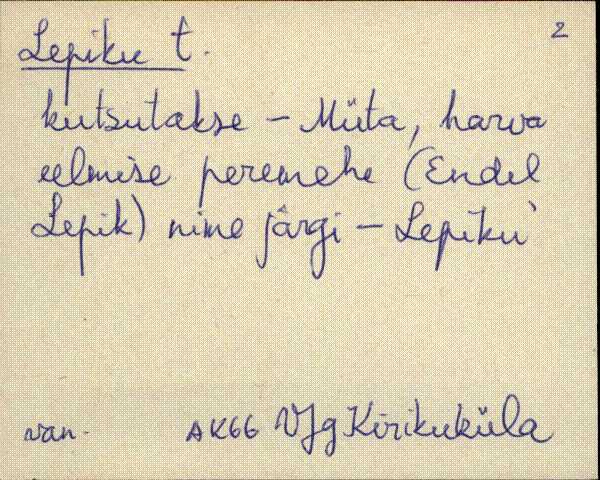 Lepiku t. 2
kutsutakse - Müta, harva
eelmise peremehe (Endel
Lepik) nime järgi - Lepiku
van. AK66 VJg Kirikuküla